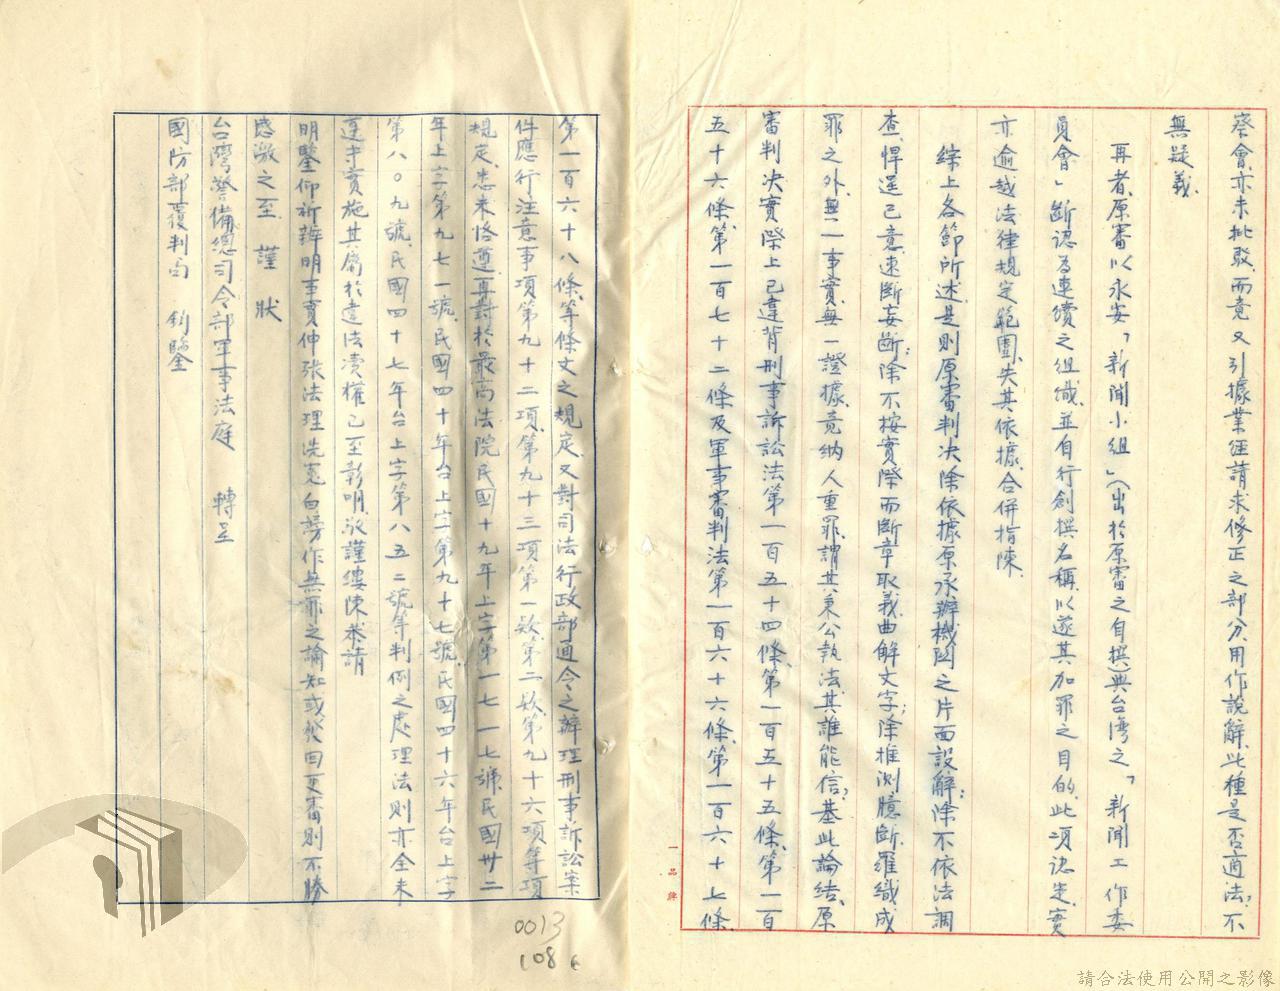 察會亦未批駁,而竟又引據業經請求修正之部分,用作說解,此種是否適法,不
無疑義.
再者,原審以永安「新聞小組」(出於原審之自撰)與台湾之「新聞工作委
員會」斷認為連續之組織,並自行創撰名稱,以遂其加罪之目的,此項認定,實
亦逾越法律規定範圍,失其依據,合併指陳.
綜上各節所述,是則原審判決除依據原承辦機関之片面設解;除不依法調
查,憚逞己意,速斷妄斷;除不按實際而斷章取義,曲解文字;除推測臆斷,羅織成
罪之外,無一事實,無一證據,竟納人重罪,謂其秉公執法,其誰能信,基此論結,原
審判決實際上已違背刑事訴訟法第一百五十四條,第一百五十五條,第一百
五十六條,第一百七十二條及軍事審判法第一百六十六條,第一百六十七條,
第一百六十八條,等條文之規定,又對司法行政部通令之辦理刑事訴訟案
件應行注意事項第九十二項,第九十三項第一欵,第二欵,第九十六項等項
規定,悉未恪遵,再對於最高法院民國十九年上字第一七一七號,民國卅二
年上字第九七一號,民國四十年台上字第九十七號,民國四十六年台上字
第八〇九號,民國四十七年台上字第八五二號等判例之處理法則亦全未
遵守實施,其屬於違法瀆權已至彰明,敬謹縷陳,恭請
明鑒,仰祈辨明事實,伸張法理,洗冤白謗,作無罪之諭知,或發回更審,則不勝
感激之至 謹 狀
台灣警備總司令部軍事法庭 轉呈
國防部覆判局 鈞鑒
一品牌
0013
108
請合法使用公開之影像